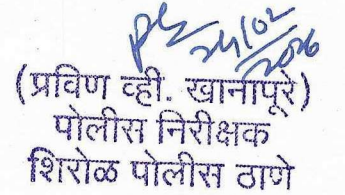 24/02/2026
(प्रविण व्ही. खानापूरे)
पोलीस निरीक्षक
शिरोळ पोलीस ठाणे